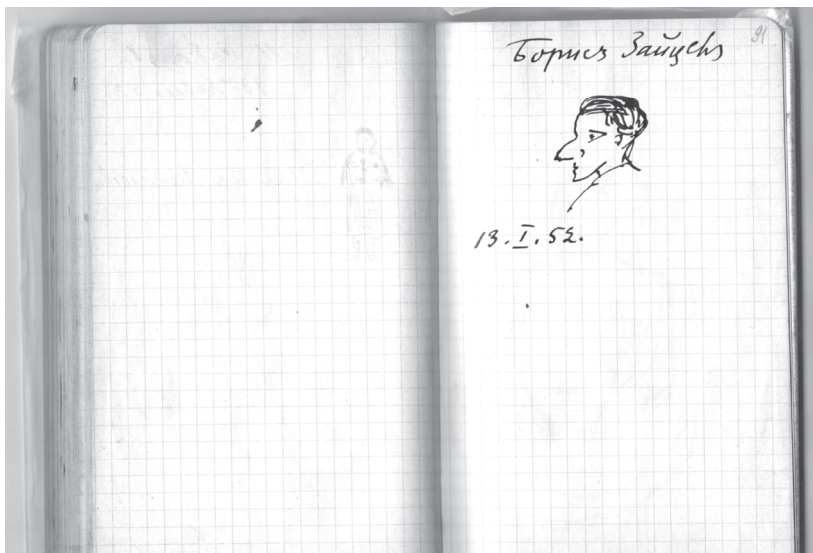 91
Борисъ Зайцевъ
13.I.52.